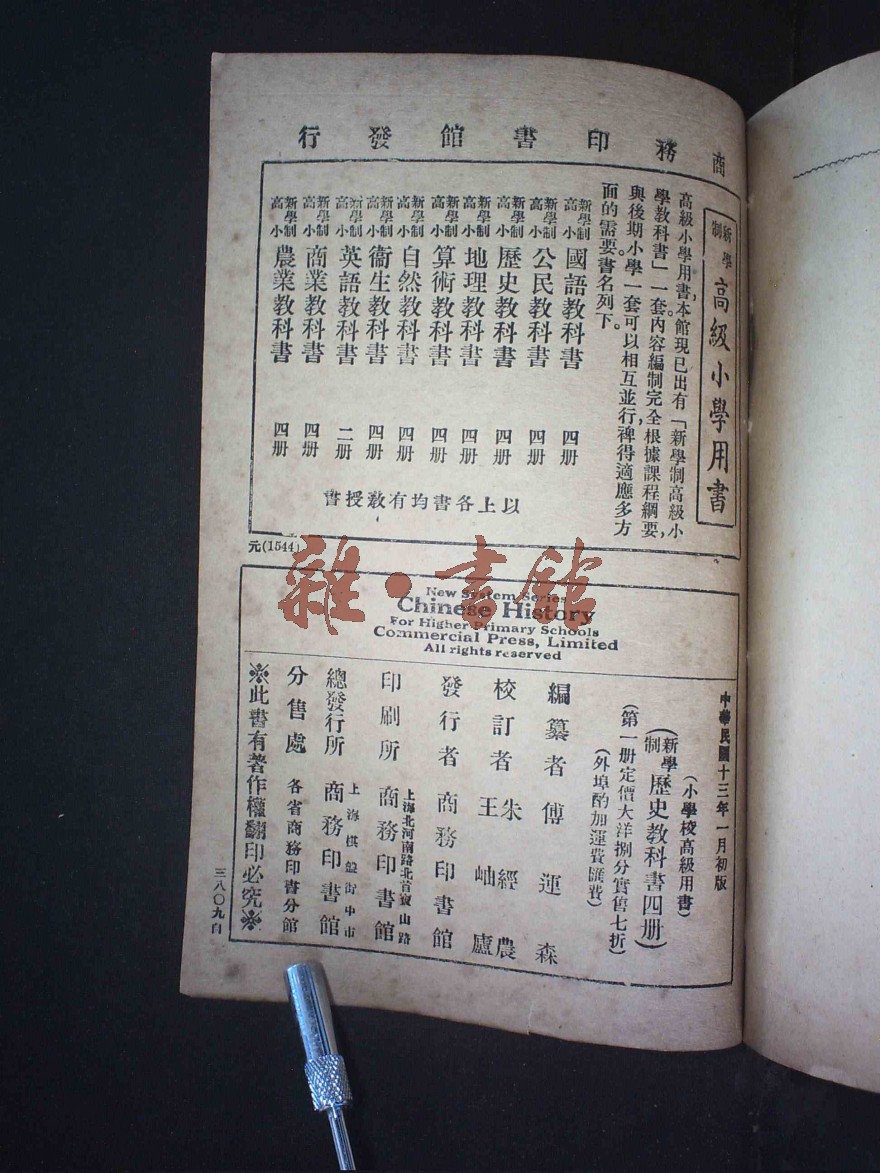 商務印書館發行
新學制高級小學用書
高級小學用書，本館現已出有「新學制高級小
學教科書」一套。內容編制完全根據課程綱要，
與後期小學一套可以相互並行，裨得適應多方
面的需要。書名列下。
新學制高小國語教科書 四册
新學制高小公民教科書 四册
新學制高小歷史教科書 四册
新學制高小地理教科書 四册
新學制高小算術教科書 四册
新學制高小自然教科書 四册
新學制高小衞生教科書 四册
新學制高小英語教科書 二册
新學制高小商業教科書 四册
新學制高小農業教科書 四册
以上各書均有教授書
元(1544)
雜·書館
New System Series
Chinese History
For Higher Primary Schools
Commercial Press, Limited
All rights reserved
中華民國十三年一月初版
(小學校高級用書)
(新學制歷史教科書四册)
(第一册定價大洋捌分實售七折)
(外埠酌加運費匯費)
編纂者 傅運森
校訂者 朱經農 王岫廬
發行者 商務印書館
印刷所 上海北河南路北首寶山路 商務印書館
總發行所 上海棋盤街中市 商務印書館
分售處 各省商務印書分館
※此書有著作權翻印必究※
三八〇九自